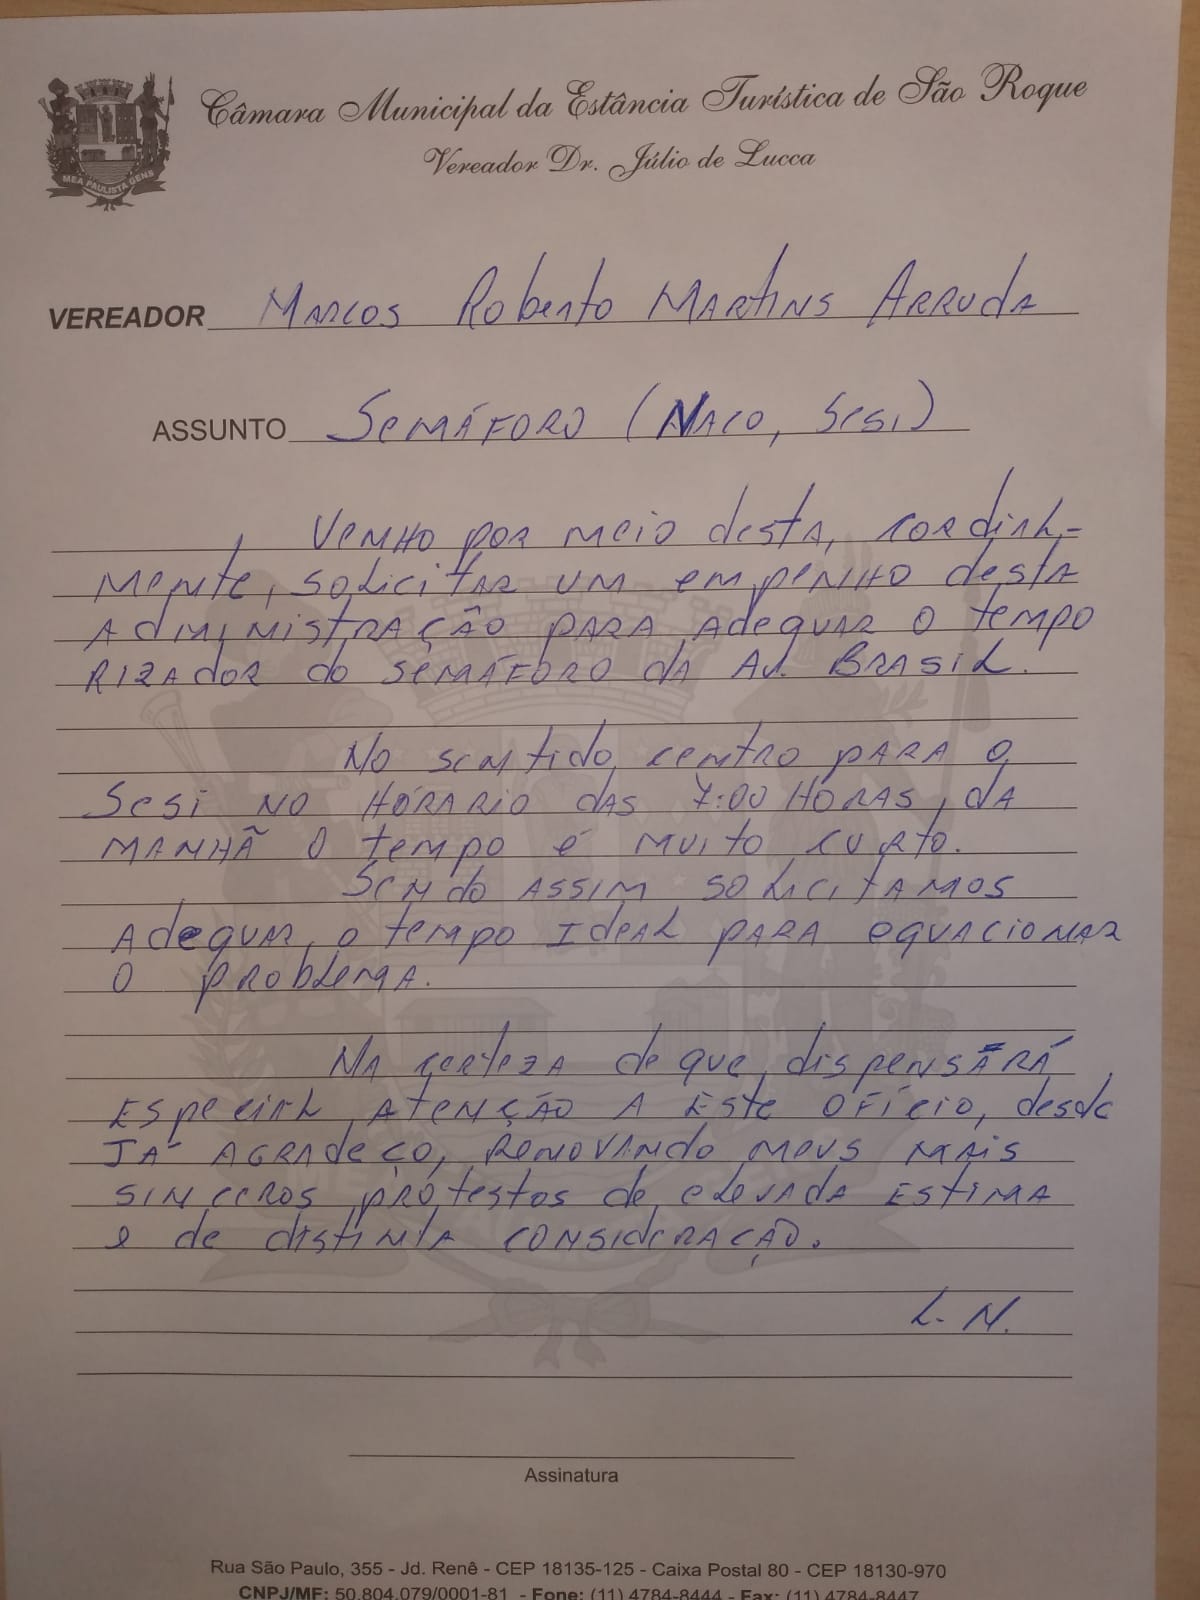 Câmara Municipal da Estância Turística de São Roque
Vereador Dr. Júlio de Lucca
MEA PAULISTA GENS
VEREADOR MARCOS Roberto MARtiNS ARRUdA
ASSUNTO SEMÁFORO (NACO, SESI)
VENHO POR MEIO destA, CORdiAL-
MENte, SOLICITAR UM EMPENHO destA
AdMINISTRAÇÃO PARA AdeqUAR O teMPO
RIZAdOR dO SEMÁFORO dA AV. BRASIL.
NO SENtidO CENtRO PARA O
SESI NO HÓRARIO dAS 7:00 HORAS, dA
MANHÃ O teMPO É MUITO CURTO.
SENdO ASSIM SOLICITAMOS
AdeqUAR, O teMPO IdeAL PARA EQUACIONAR
O PRObLEMA.
NA CERteZA de que dISPENSARÁ
ESPECIAL AtENÇÃO A ESte OFÍCIO, desde
JÁ AGRAdeÇO, RENOVANdO MEUS MAIS
SINCEROS PROtestOS de ELEVADA EStIMA
e de dIStINtA CONSIdeRAÇÃO.
L. N.
Assinatura
Rua São Paulo, 355 - Jd. Renê - CEP 18135-125 - Caixa Postal 80 - CEP 18130-970
CNPJ/MF: 50.804.079/0001-81 - Fone: (11) 4784-8444 - Fax: (11) 4784-8447